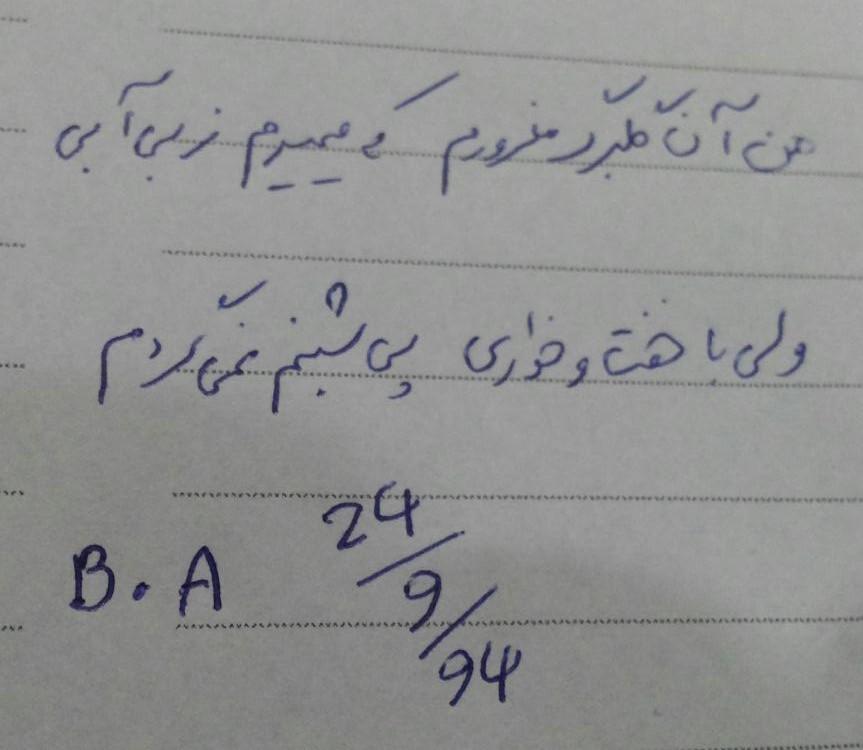 من آن گلبرگ مغرورم که میمیرم ز بی آبی
ولی با خفت و خواری پی شبنم نمی گردم
B.A 24/9/94